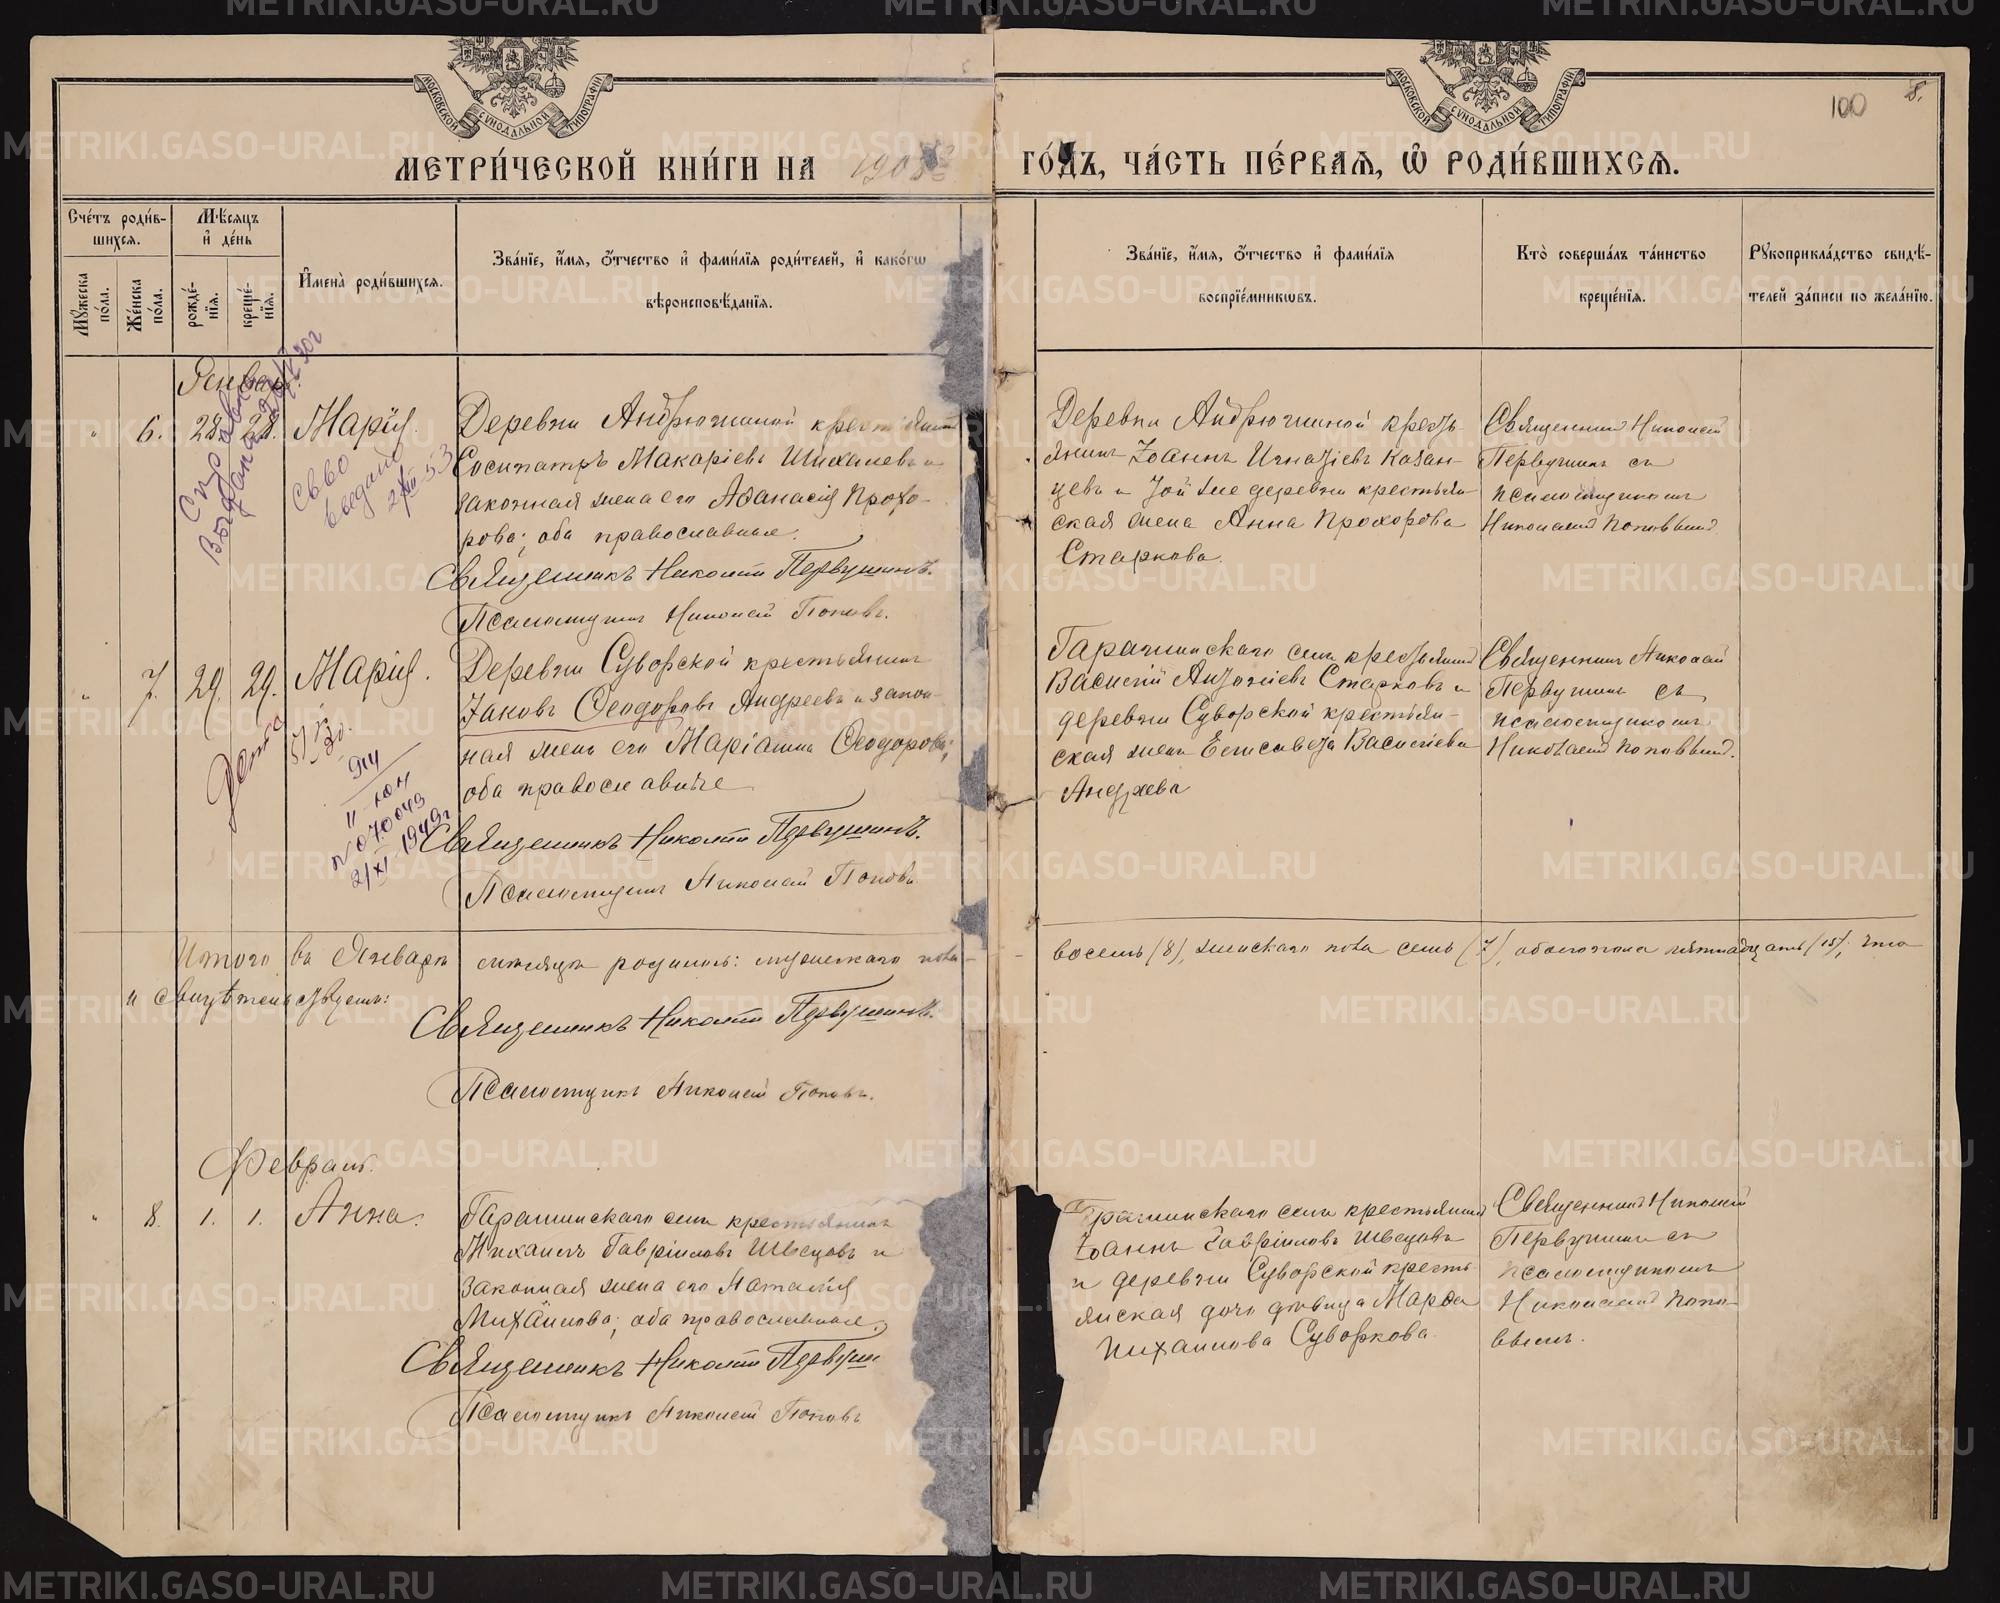 МОСКОВСКОЙ СѴНОДАЛЬНОЙ ТИПОГРАФІИ
МОСКОВСКОЙ СѴНОДАЛЬНОЙ ТИПОГРАФІИ
100
8.
МЕТРИ́ЧЕСКОЙ КНИ́ГИ НА 1908
ГО́ДЪ, ЧА́СТЬ ПЕ́РВАЯ, Ѡ РОДИ́ВШИХСЯ.
Сче́тъ роди́в-
шихся.
Мꙋ́жеска по́ла.
Же́нска по́ла.
Мѣ́сяцъ
и҆ де́нь
рожде́-
нїя.
креще́-
нїя.
И҆мена̀ роди́вшихся.
Зва́нїе, и҆́мя, ѻ҆́тчество и҆ фами́лїя роди́телей, и҆ како́гѡ
вѣроисповѣ́данїя.
Зва́нїе, и҆́мя, ѻ҆́тчество и҆ фами́лїя
воспрїе́мникѡвъ.
Кто̀ соверша́лъ та́инство
креще́нїя.
Рꙋкоприкла́дство свидѣ́-
телей за́писи по жела́нїю.
Январь.
6. 28. 28. Марія.
Деревни Андрюшиной крестьянинъ
Сосипатръ Макаріевъ Шихалевъ и
законная жена его Аѳанасія Прохо-
рова; оба православные.
Священникъ Николай Первушинъ.
Псаломщикъ Николай Поповъ.
Деревни Андрюшиной кресть-
янинъ Іоаннъ Игнатіевъ Казан-
цевъ и той же деревни крестьян-
ская жена Анна Прохорова
Старкова.
Священникъ Николай
Первушинъ съ
псаломщикомъ
Николаемъ Поповымъ
Справка
Выдана
св-во
выдано
2/XII 53
7. 29. 29. Марія.
Деревни Суворской крестьянинъ
Іаковъ Ѳеодоровъ Андреевъ и закон-
ная жена его Маріанна Ѳеодорова;
оба православные
Священникъ Николай Первушинъ.
Псаломщикъ Николай Поповъ
Гарашкинскаго села крестьянинъ
Василій Антоніевъ Старковъ и
деревни Суворской крестьян-
ская жена Елисавета Васильева
Андреева
Священникъ Николай
Первушинъ съ
псаломщикомъ
Николаемъ Поповымъ.
II
№ 070043
2/XI-1949г
Итого въ Январѣ мѣсяцѣ родилось: мужескаго пола
восемь (8), женскаго пола семь (7), обоего пола пятнадцать (15); что
и свидѣтельствуемъ:
Священникъ Николай Первушинъ.
Псаломщикъ Николай Поповъ.
Февраль.
8. 1. 1. Анна.
Гарашкинскаго села крестьянинъ
Михаилъ Гавріиловъ Швецовъ и
законная жена его Наталія
Михаилова; оба православные.
Священникъ Николай Первушин
Псаломщикъ Николай Поповъ
Гарашкинскаго села крестьянинъ
Іоаннъ Гавріиловъ Швецовъ
и деревни Суворской кресть-
янская дочь дѣвица Марѳа
Михаилова Суворкова.
Священникъ Николай
Первушинъ съ
псаломщикомъ
Николаемъ Попо-
вымъ.
METRIKI.GASO-URAL.RU